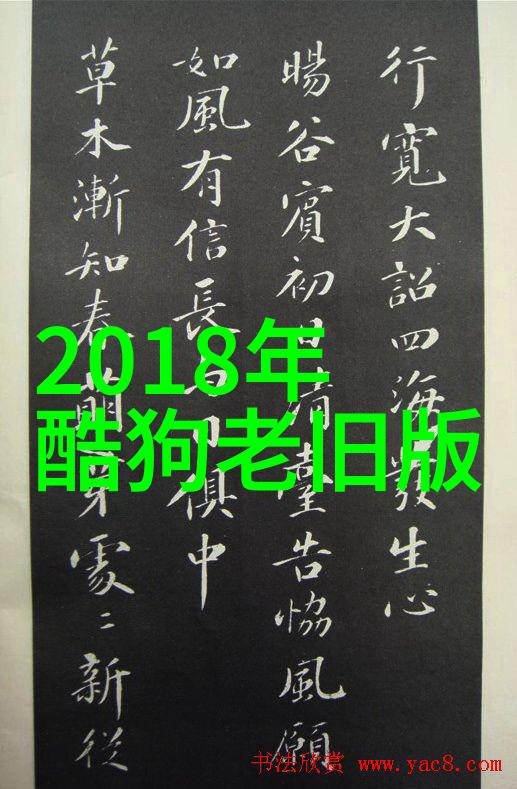 行寬大詔四海發生心
暘谷賓初日清臺告協風願
如風有信長与日俱中
草木漸知春萌芽處〻新從
2018年
酷狗老旧版
书法欣赏 www.yac8.com